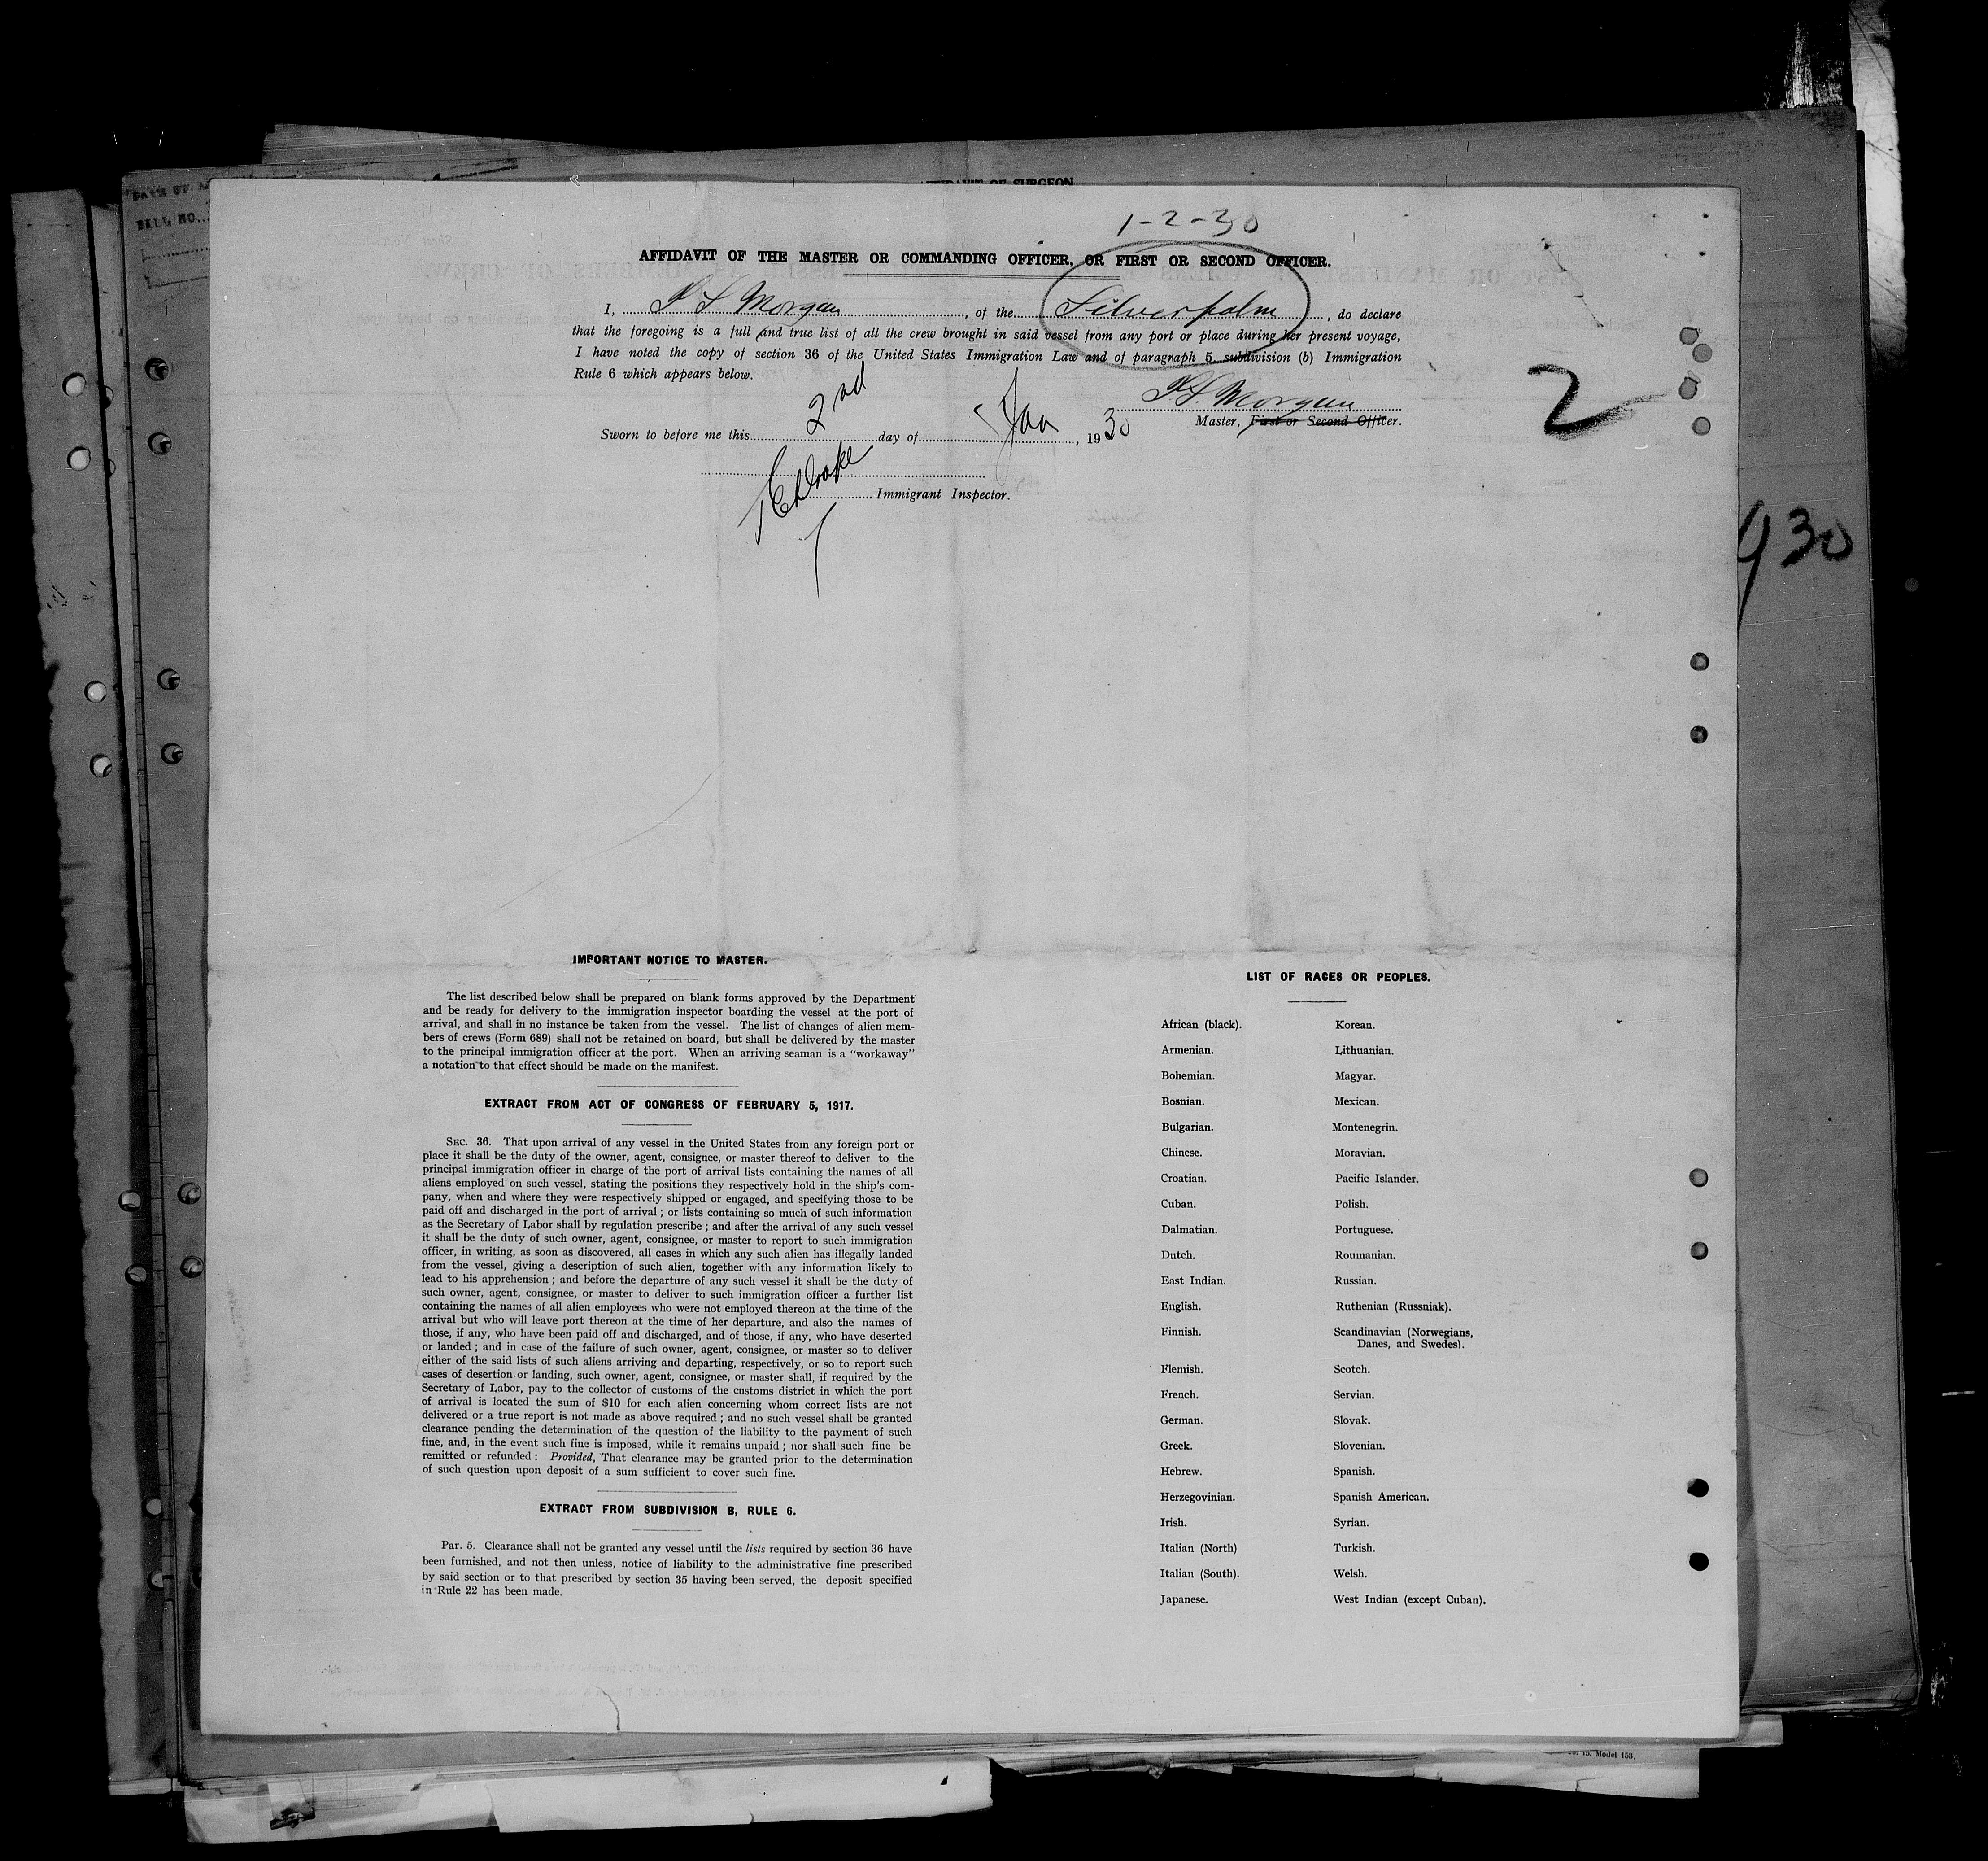 AFFIDAVIT OF SURGEON
DATE OF
BILL NO.
1-2-30
AFFIDAVIT OF THE MASTER OR COMMANDING OFFICER, OR FIRST OR SECOND OFFICER.
I, Morgan, of the Silverpalm, do declare
that the foregoing is a full and true list of all the crew brought in said vessel from any port or place during her present voyage,
I have noted the copy of section 36 of the United States Immigration Law and of paragraph 5, subdivision (b) Immigration
Rule 6 which appears below.
Morgan
Master, First or Second Officer.
2
Sworn to before me this 2nd day of Jan, 1930
Drake
Immigrant Inspector.
930
IMPORTANT NOTICE TO MASTER.
The list described below shall be prepared on blank forms approved by the Department
and be ready for delivery to the immigration inspector boarding the vessel at the port of
arrival, and shall in no instance be taken from the vessel. The list of changes of alien mem-
bers of crews (Form 689) shall not be retained on board, but shall be delivered by the master
to the principal immigration officer at the port. When an arriving seaman is a "workaway"
a notation to that effect should be made on the manifest.
EXTRACT FROM ACT OF CONGRESS OF FEBRUARY 5, 1917.
SEC. 36. That upon arrival of any vessel in the United States from any foreign port or
place it shall be the duty of the owner, agent, consignee, or master thereof to deliver to the
principal immigration officer in charge of the port of arrival lists containing the names of all
aliens employed on such vessel, stating the positions they respectively hold in the ship's com-
pany, when and where they were respectively shipped or engaged, and specifying those to be
paid off and discharged in the port of arrival; or lists containing so much of such information
as the Secretary of Labor shall by regulation prescribe; and after the arrival of any such vessel
it shall be the duty of such owner, agent, consignee, or master to report to such immigration
officer, in writing, as soon as discovered, all cases in which any such alien has illegally landed
from the vessel, giving a description of such alien, together with any information likely to
lead to his apprehension; and before the departure of any such vessel it shall be the duty of
such owner, agent, consignee, or master to deliver to such immigration officer a further list
containing the names of all alien employees who were not employed thereon at the time of the
arrival but who will leave port thereon at the time of her departure, and also the names of
those, if any, who have been paid off and discharged, and of those, if any, who have deserted
or landed; and in case of the failure of such owner, agent, consignee, or master so to deliver
either of the said lists of such aliens arriving and departing, respectively, or so to report such
cases of desertion or landing, such owner, agent, consignee, or master shall, if required by the
Secretary of Labor, pay to the collector of customs of the customs district in which the port
of arrival is located the sum of $10 for each alien concerning whom correct lists are not
delivered or a true report is not made as above required; and no such vessel shall be granted
clearance pending the determination of the question of the liability to the payment of such
fine, and, in the event such fine is imposed, while it remains unpaid; nor shall such fine be
remitted or refunded: Provided, That clearance may be granted prior to the determination
of such question upon deposit of a sum sufficient to cover such fine.
EXTRACT FROM SUBDIVISION B, RULE 6.
Par. 5. Clearance shall not be granted any vessel until the lists required by section 36 have
been furnished, and not then unless, notice of liability to the administrative fine prescribed
by said section or to that prescribed by section 35 having been served, the deposit specified
in Rule 22 has been made.
LIST OF RACES OR PEOPLES.
African (black). Korean.
Armenian. Lithuanian.
Bohemian. Magyar.
Bosnian. Mexican.
Bulgarian. Montenegrin.
Chinese. Moravian.
Croatian. Pacific Islander.
Cuban. Polish.
Dalmatian. Portuguese.
Dutch. Roumanian.
East Indian. Russian.
English. Ruthenian (Russniak).
Finnish. Scandinavian (Norwegians,
Danes, and Swedes).
Flemish. Scotch.
French. Servian.
German. Slovak.
Greek. Slovenian.
Hebrew. Spanish.
Herzegovinian. Spanish American.
Irish. Syrian.
Italian (North) Turkish.
Italian (South). Welsh.
Japanese. West Indian (except Cuban).
15. Model 153.